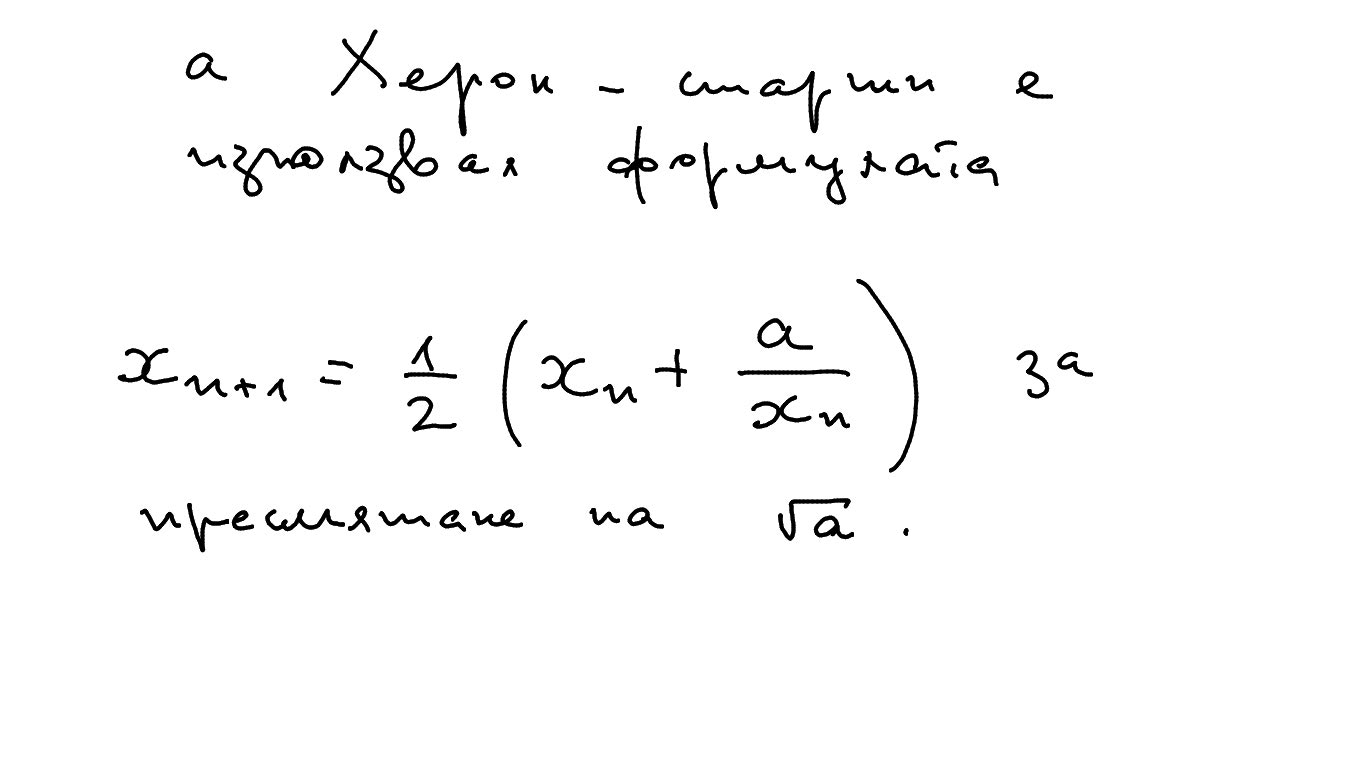 а Херон - старши е
използвал формулата
x_{n+1} = \frac{1}{2} \left( x_n + \frac{a}{x_n} \right) за
пресмятане на √a .